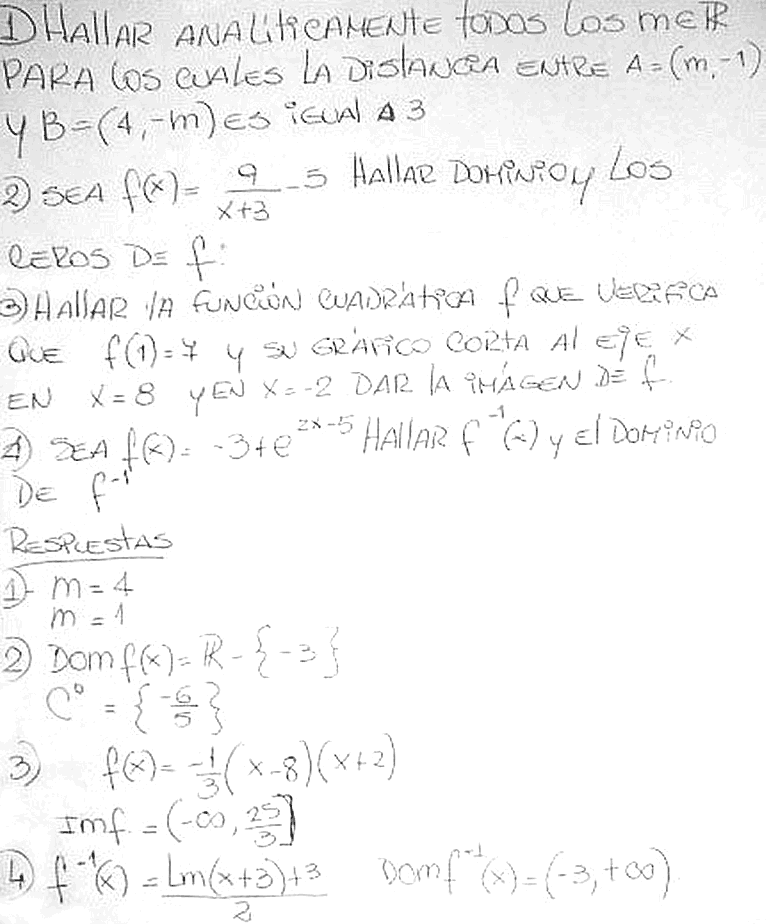 1) HALLAR ANALÍTICAMENTE TODOS LOS m∈ℝ
PARA LOS CUALES LA DISTANCIA ENTRE A=(m,-1)
Y B=(4,-m) ES IGUAL A 3
2) SEA f(x)= 9/(x+3) - 5 HALLAR DOMINIO Y LOS
CEROS DE f:
3) HALLAR LA FUNCIÓN CUADRÁTICA f QUE VERIFICA
QUE f(1)=7 Y SU GRÁFICO CORTA AL EJE X
EN X=8 Y EN X=-2 DAR LA IMÁGEN DE f.
4) SEA f(x)= -3+e^(2x-5) HALLAR f^-1(x) y El DOMINIO
DE f^-1
RESPUESTAS
1)- m=4
m=1
2) Dom f(x)= ℝ-{-3}
C° = {-6/5}
3) f(x)= -1/3(x-8)(x+2)
Imf. = (-∞, 25/3]
4) f^-1(x) = (Ln(x+3)+3)/2 Domf^-1(x)=(-3,+∞)